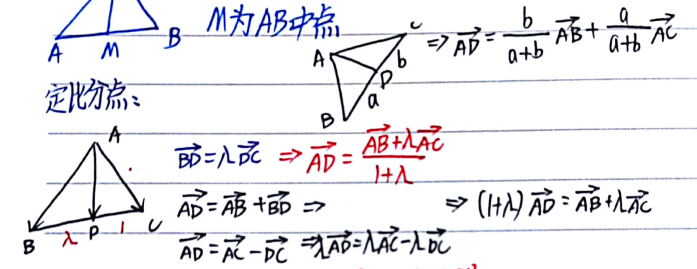 A M B M为AB中点
A B C D a b ⇒ \overrightarrow{AD} = \frac{b}{a+b}\overrightarrow{AB} + \frac{a}{a+b}\overrightarrow{AC}
定比分点:
A B D C λ 1
\overrightarrow{BD} = λ\overrightarrow{DC} ⇒ \overrightarrow{AD} = \frac{\overrightarrow{AB}+λ\overrightarrow{AC}}{1+λ}
\overrightarrow{AD} = \overrightarrow{AB} + \overrightarrow{BD} ⇒ ⇒ (1+λ)\overrightarrow{AD} = \overrightarrow{AB} + λ\overrightarrow{AC}
\overrightarrow{AD} = \overrightarrow{AC} - \overrightarrow{DC} ⇒ λ\overrightarrow{AD} = λ\overrightarrow{AC} - λ\overrightarrow{DC}